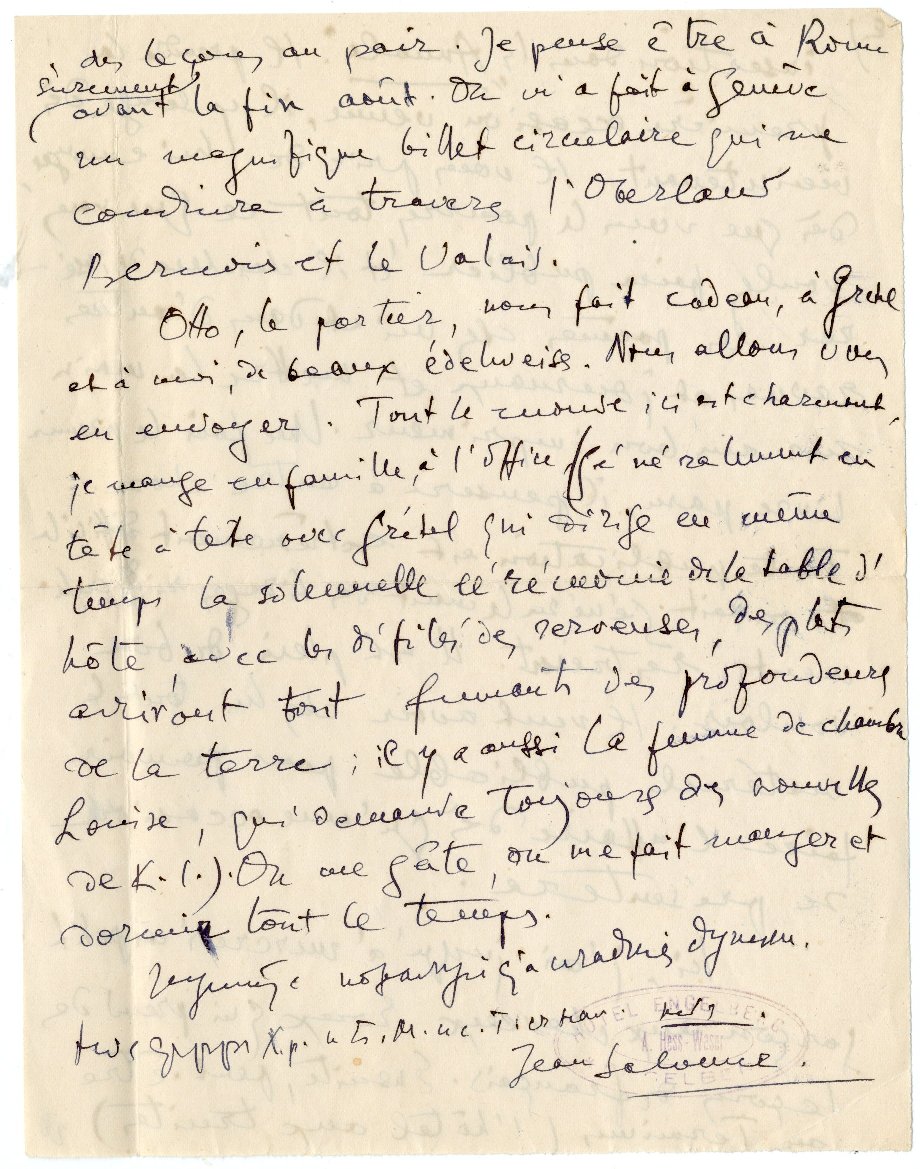 des leçons au pair. Je pense être à Rome
sûrement
avant la fin août. On m'a fait à Genève
un magnifique billet circulaire qui me
conduira à travers l'Oberland
Bernois et le Valais.
Otto, le portier, nous fait cadeau, à Gretel
et à moi, de beaux édelweiss. Nous allons vous
en envoyer. Tout le monde ici est charmant,
je mange en famille, à l'office, généralement en
tête à tête avec Grétel qui dirige en même
temps la solennelle cérémonie de la table d'
hôte, avec les défilés des serveuses, des plats
arrivant tout fumants des profondeurs
de la terre ; il y a aussi la femme de chambre
Louise, qui demande toujours des nouvelles
de K. (.). On me gâte, on me fait manger et
dormir tout le temps.
HOTEL ENGELBERG
A. Hess-Waser
Jean Salomé.